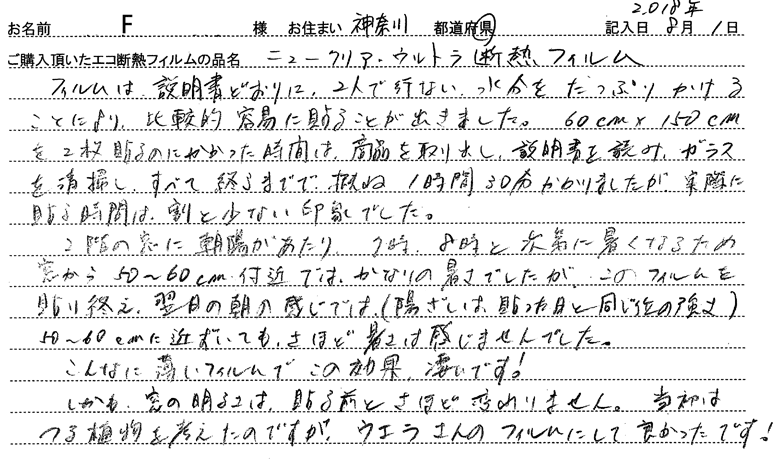 2018年
お名前 F 様 お住まい 神奈川 都道府県 記入日 8月1日
ご購入頂いたエコ断熱フィルムの品名 ニュークリア・ウルトラ断熱フィルム
フィルムは、説明書どおりに、2人で行ない、水分をたっぷりかける
ことにより、比較的容易に貼ることが出きました。60cm×150cm
を2枚貼るのにかかった時間は、商品を取り出し、説明書を読み、ガラス
を清掃し、すべて終るまでで、概ね1時間30分かかりましたが、実際に
貼る時間は、割と少ない印象でした。
2階の窓に朝陽があたり、7時、8時と次第に暑くなるため
窓から50〜60cm付近では、かなりの暑さでしたが、このフィルムを
貼り終え、翌日の朝の感じでは、(陽ざしは、貼った日と同じ位の強さ)
50〜60cmに近ずいても、さほど暑さは感じませんでした。
こんなに薄いフィルムで この効果、凄いです!
しかも、窓の明るさは、貼る前とさほど変わりません。当初は
つる植物を考えたのですが、ウエラさんのフィルムにして良かったです!